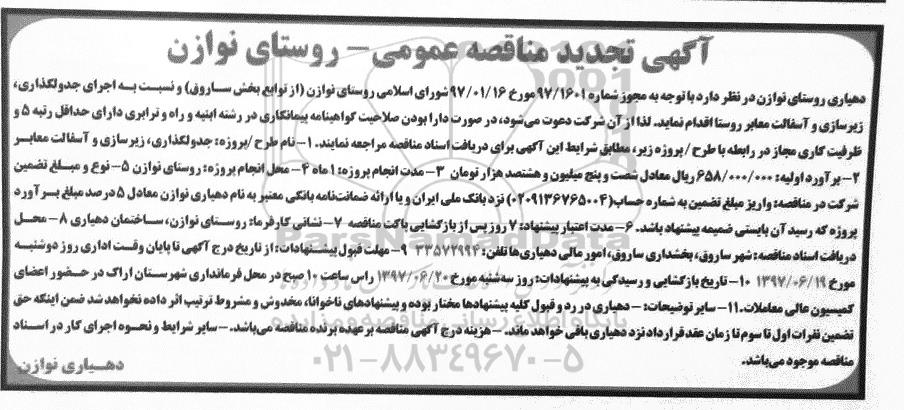 آگهی تجدید مناقصه عمومی – روستای نوازن
دهیاری روستای نوازن در نظر دارد با توجه به مجوز شماره ۹۷/۱۶۰۱ مورخ ۹۷/۰۱/۱۶ شورای اسلامی روستای نوازن (از توابع بخش ساروق) و نسبت به اجرای جدولگذاری،
زیرسازی و آسفالت معابر روستا اقدام نماید. لذا از آن شرکت دعوت می‌شود، در صورت دارا بودن صلاحیت گواهینامه پیمانکاری در رشته ابنیه و راه و ترابری دارای حداقل رتبه ۵ و
ظرفیت کاری مجاز در رابطه با طرح / پروژه زیر، مطابق شرایط این آگهی برای دریافت اسناد مناقصه مراجعه نمایند. ۱- نام طرح /پروژه: جدولگذاری، زیرسازی و آسفالت معابر
۲- برآورد اولیه: ۶۵۸/۰۰۰/۰۰۰ ریال معادل شصت و پنج میلیون و هشتصد هزار تومان ۳- مدت انجام پروژه: ۱ ماه ۴- محل انجام پروژه: روستای نوازن ۵- نوع و مبلغ تضمین
شرکت در مناقصه: واریز مبلغ تضمین به شماره حساب (۰۲۰۹۱۳۶۷۶۵۰۰۴) نزد بانک ملی ایران و یا ارائه ضمانت‌نامه بانکی معتبر به نام دهیاری نوازن معادل ۵ درصد مبلغ برآورد
پروژه که رسید آن بایستی ضمیمه پیشنهاد باشد. ۶- مدت اعتبار پیشنهاد: ۷ روز پس از بازگشایی پاکت مناقصه ۷- نشانی کارفرما: روستای نوازن، ساختمان دهیاری ۸- محل
دریافت اسناد مناقصه: شهر ساروق، بخشداری ساروق، امور مالی دهیاری‌ها تلفن: ۳۳۵۷۲۹۹۴ ۹- مهلت قبول پیشنهادات: از تاریخ درج آگهی تا پایان وقت اداری روز دوشنبه
مورخ ۱۳۹۷/۰۶/۱۹ ۱۰- تاریخ بازگشایی و رسیدگی به پیشنهادات: روز سه‌شنبه مورخ ۱۳۹۷/۰۶/۲۰ راس ساعت ۱۰ صبح در محل فرمانداری شهرستان اراک در حضور اعضای
کمیسیون عالی معاملات. ۱۱- سایر توضیحات: - دهیاری در رد و قبول کلیه پیشنهادها مختار بوده و پیشنهادهای ناخوانا، مخدوش و مشروط ترتیب اثر داده نخواهد شد ضمن اینکه حق
تضمین نفرات اول تا سوم تا زمان عقد قرارداد نزد دهیاری باقی خواهد ماند. - هزینه درج آگهی مناقصه بر عهده برنده مناقصه می‌باشد. - سایر شرایط و نحوه اجرای کار در اسناد
مناقصه موجود می‌باشد.
دهیاری نوازن
ParsNamadData
پایگاه اطلاع رسانی مناقصه و مزایده
۰۲۱-۸۸۳۴۹۶۷۰-۵